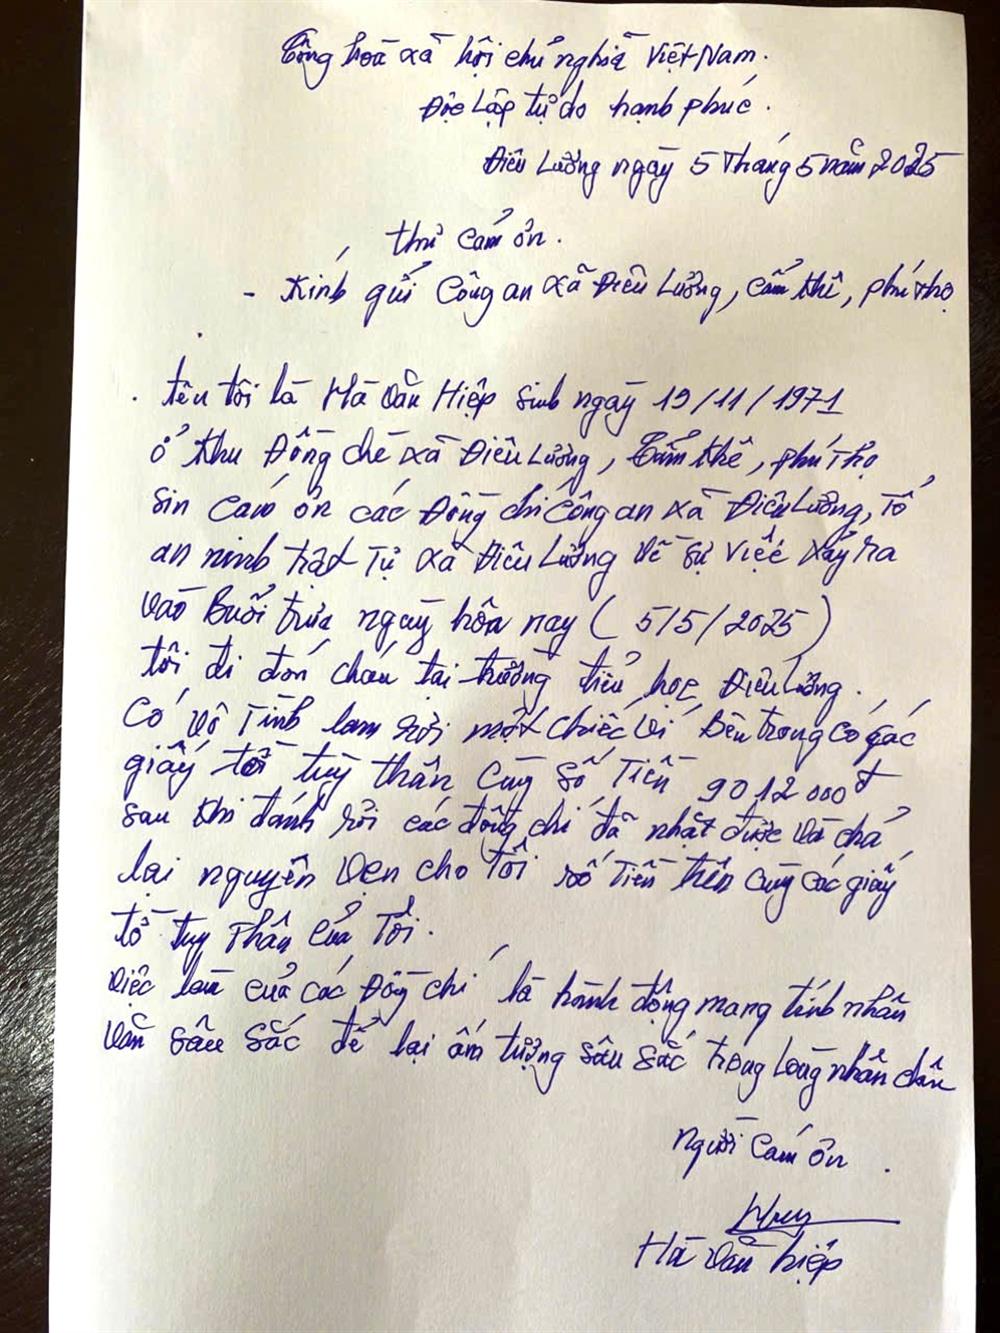 Cộng hoà xã hội chủ nghĩa Việt Nam.
Độc Lập tự do hạnh phúc.
Điêu Lương ngày 5 Tháng 5 năm 2025
Thư Cảm ơn.
- Kính gửi Công an xã Điêu Lương, Cẩm Khê, Phú Thọ
. tên tôi là Hà Văn Hiệp sinh ngày 19/11/1971
ở Khu Đồng chè xã Điêu Lương, Cẩm Khê, Phú Thọ
sin Cảm ơn các Đồng chí Công an xã Điêu Lương, Tổ
an ninh trật Tự xã Điêu Lương Về Sự Việc xảy ra
vào Buổi trưa ngày hôm nay (5/5/2025)
tôi đi đón cháu tại trường tiểu học Điêu Lương.
Có vô Tình làm rơi một chiếc Ví Bên trong có các
giấy tờ tuỳ thân Cùng Số Tiền 9012000đ
sau khi đánh rơi các đồng chí đã nhặt được Và chả
lại nguyên vẹn cho Tôi số Tiền trên Cùng các giấy
tờ tuỳ Thân Của Tôi.
Việc làm của các Đồng chí là hành động mang tính nhân
văn sâu sắc để lại ấn tượng sâu sắc trong Lòng nhân dân
Người Cảm ơn.
Hà Văn Hiệp